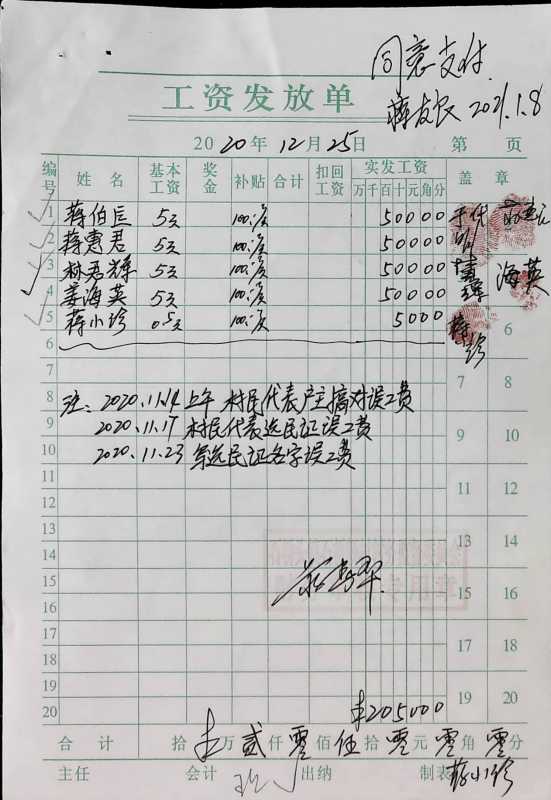 同意支付
2021.1.8
工资发放单
2020年12月25日 第 页
编号 姓名 基本工资 奖金 补贴 合计 扣回工资 实发工资 万千百十元角分 盖章
1 蒋伯 5天 100元/天 50000
2 蒋惠君 5天 100元/天 50000
3 林君辉 5天 100元/天 50000
4 姜海英 5天 100元/天 50000 海英
5 蒋小珍 0.5天 100元/天 5000
6 6
7 7 8
8 注：2020.11.14上午 村民代表户主搞对误工费
9 2020.11.17 村民代表选民证误工费 9 10
10 2020.11.23 写选民证名字误工费
11 11 12
12
13 13 14
14
15 15 16
16
17 17 18
18
19 19 20
20 ¥205000
合计 拾 万 贰 仟 零 佰 伍 拾 零 元 零 角 零 分
主任 会计 出纳 制表 蒋小珍